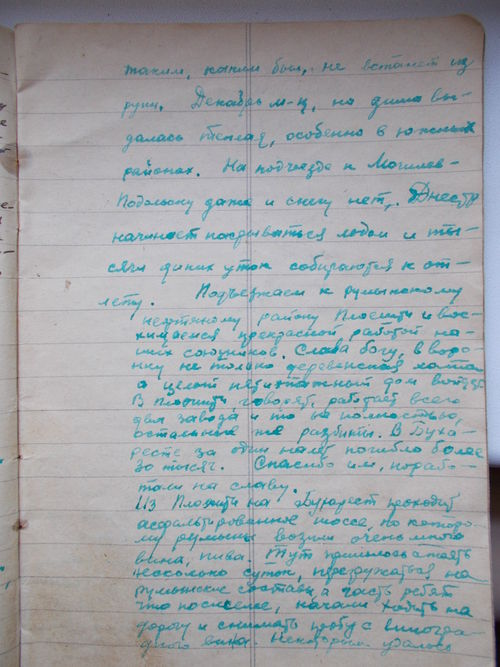 таким, каким был, не встанет из
руин. Декабрь м-ц, но зима вы-
далась теплая, особенно в южных
районах. На подъезде к Могилев-
Подольску даже и снегу нет, Днестр
начинает покрываться льдом и ты-
сячи диких уток собираются к от-
лету. Подъезжаем к румынскому
нефтяному району Плоешти и вос-
хищаемся прекрасной работой на-
ших союзников. Слава богу, в воро-
нку не только деревенская хата
а целый пятиэтажный дом войдет
В Плоешти говорят, работает всего
два завода и то не полностью,
остальные же разбиты. В Буха-
ресте за один налет погибло более
30 тысяч. Спасибо им, порабо-
тали на славу.
Из Плоешти на Бухарест проходит
асфальтированное шоссе, по которо-
му румыны возили очень много
вина, пива. Тут пришлось стоять
несколько суток, перегружаться на
румынские составы а часть ребят
что посмелее, начали ходить на
дорогу и снимать пробу с виногра-
дного вина. Некоторым удалось